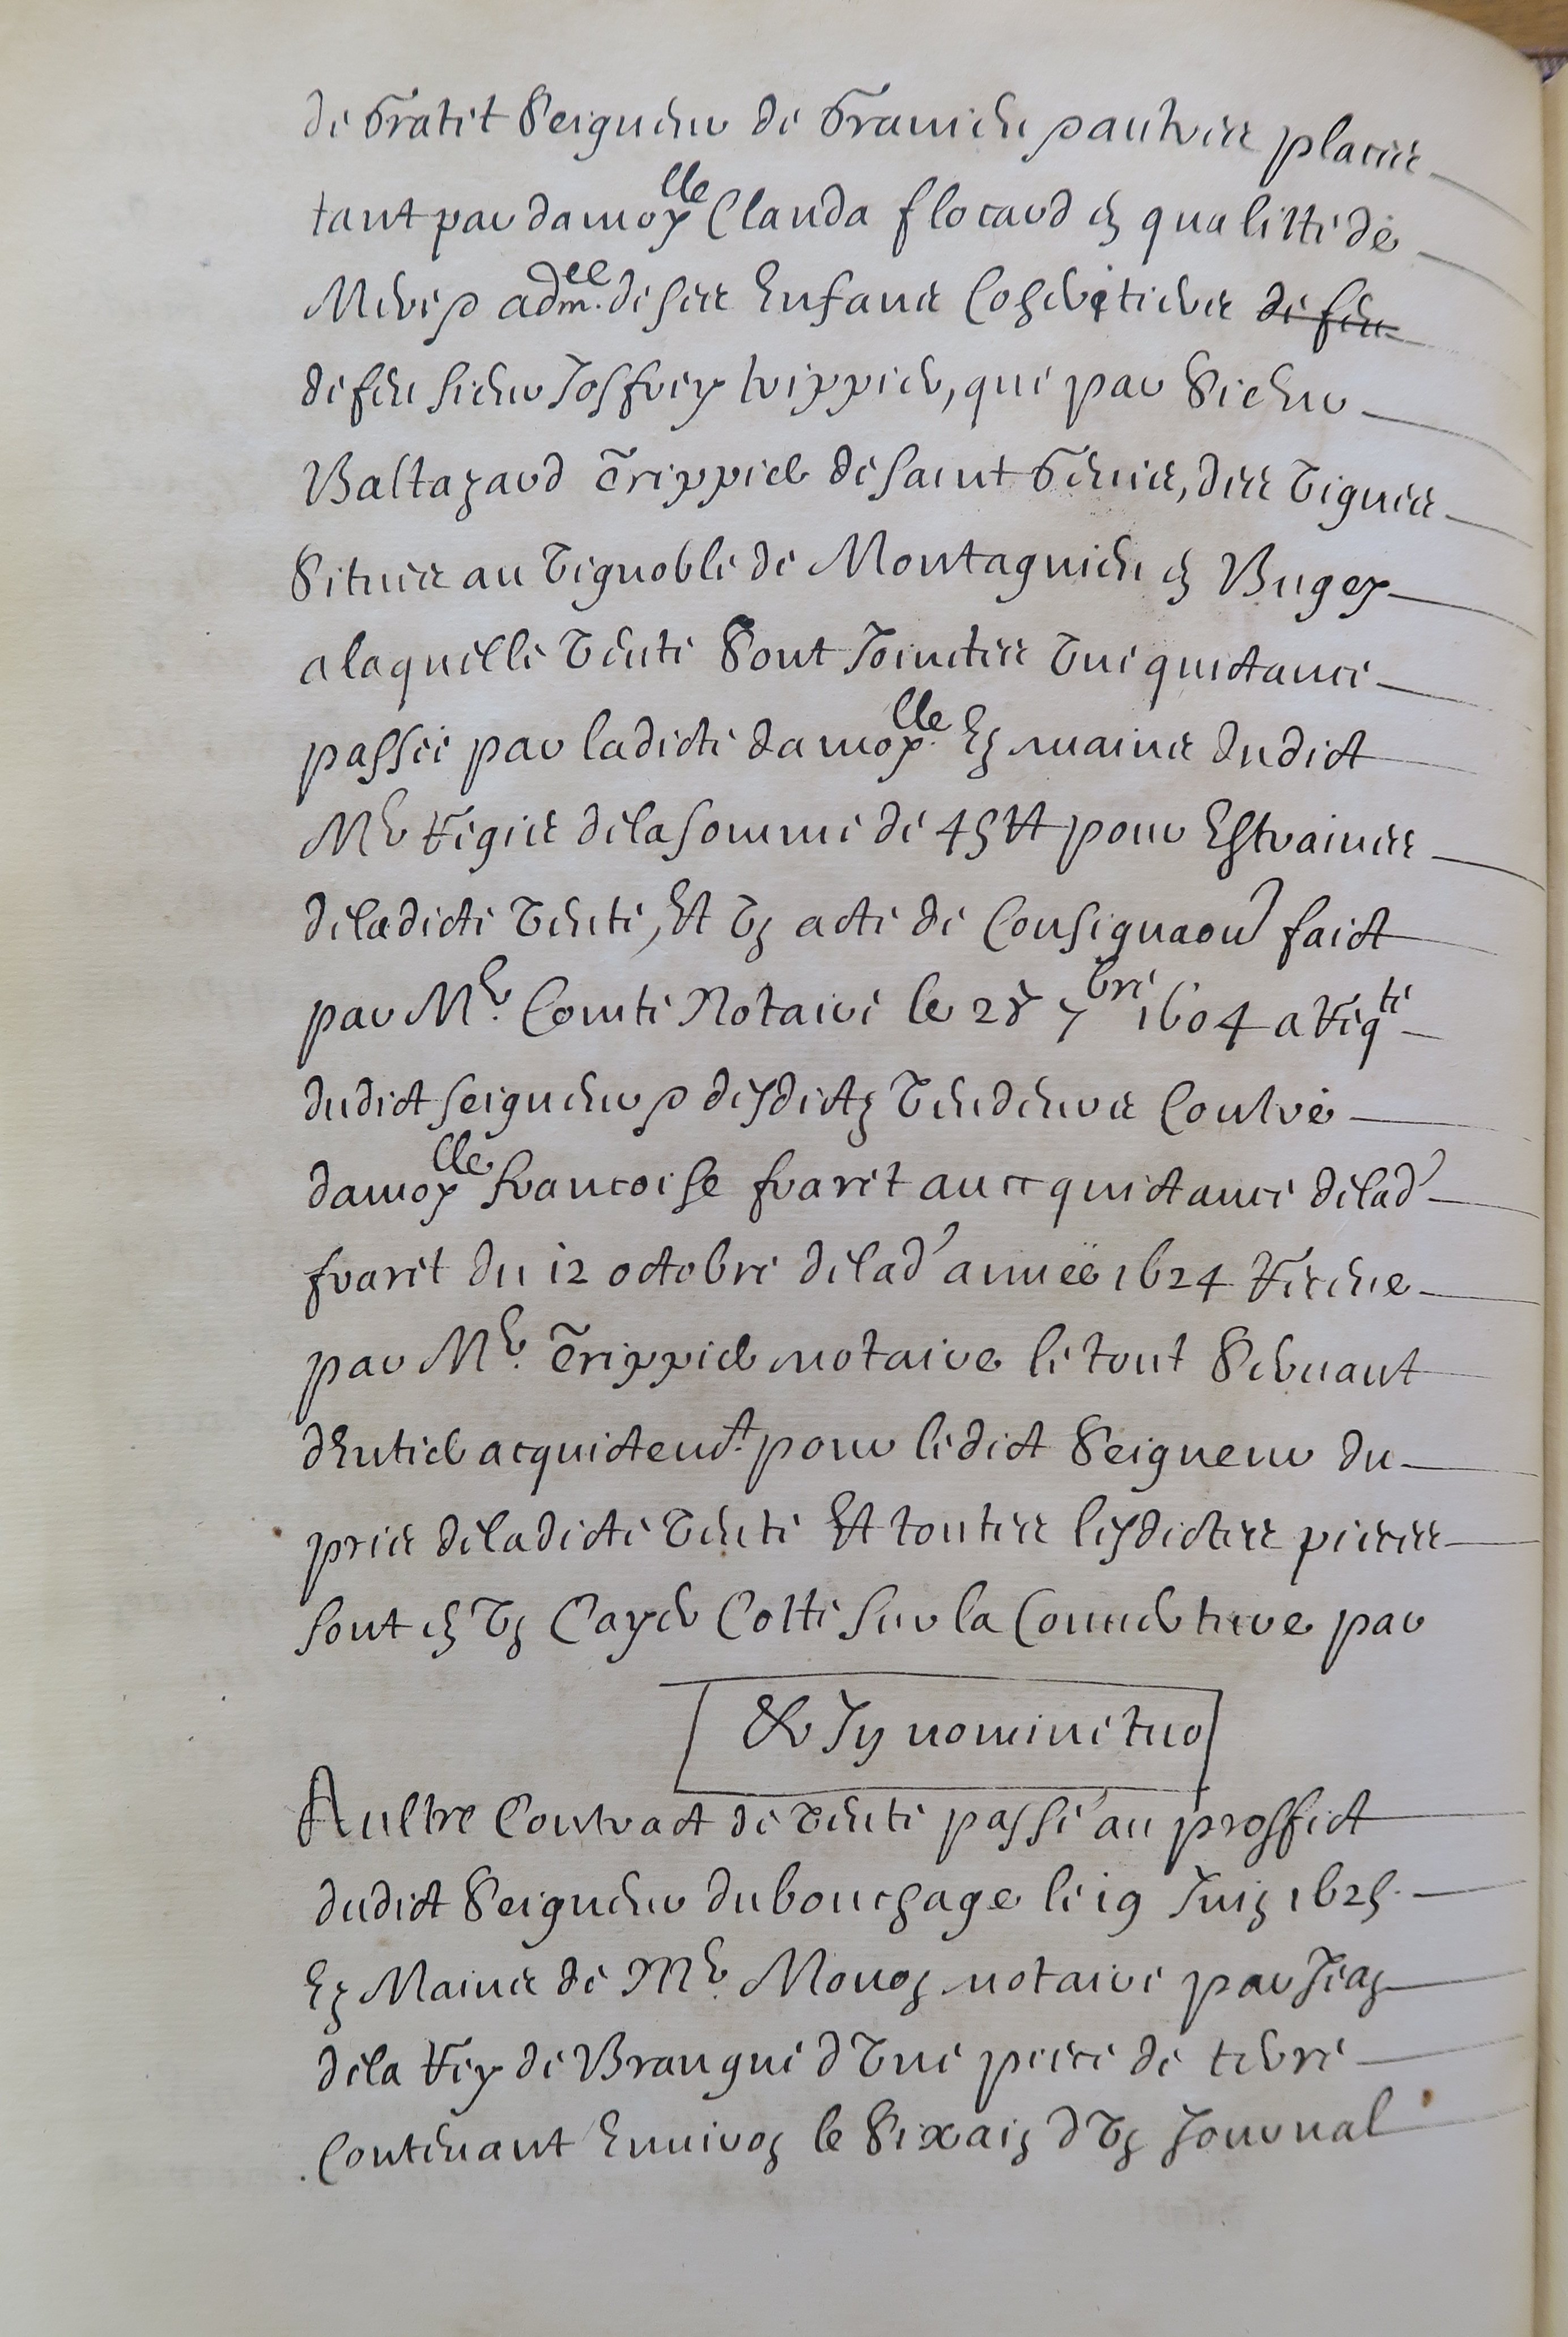 de Gratet Seigneur de Granieu pautres places
tant par damoy^lle Clauda flocard en qualitté de
Mere & adm.^ee de ses Enfans Coheretiers de feu
de feu sieur Joffrey trippier, que par Sieur
Baltazard Trippier de saint Genis, des Vignes
Situes au Vignoble de Montagnieu en Bugey
a laquelle Vente Sont Joinctes Une quictance
passée par ladicte damoy.^lle Ez mains dudict
M^e Regis de la somme de 45 ℔ pour Estraines
de ladicte Vente, Et Un acte de Consignaon faict
par M^e. Comte Notaire le 28 7^bre 1604 a Req^te
dudict seigneur & desdictz Vendeurs Contre
damoy^lle francoise fraret avec quictance de lad'
fraret du 12 octobre de lad' année 1624 Receue
par M^e. Trippier notaire le tout Servant
d'Entier acquictem^t. pour ledict Seigneur du
pris de ladicte Vente Et toutes lesdictes pieces
sont en Un Cayer Cotté sur la Couverture par
& Jn nomine tuo
Aultre Contract de Vente passé au proffict
dudict Seigneur du bouchage le 19 Juin 1625.
Ez Mains de M^e. Monon notaire par Jean
de la Rey de Brangue d'Une piece de terre
Contenant Environ le Sixain d'Un Journal